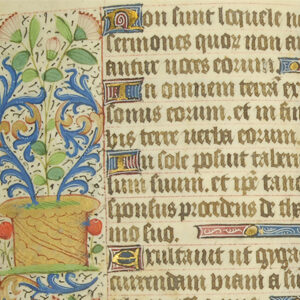 Non sunt loquele n
sermones quor non a
antur uoces eorum
In omnem terrā ex
sonus eorum. et in fi
bus terre uerba eorum.
In sole posuit taber
suum. et ip̄e tan
sponsus procedens de tha
mo suo.
Exultauit ut gyga
currendam uiam a